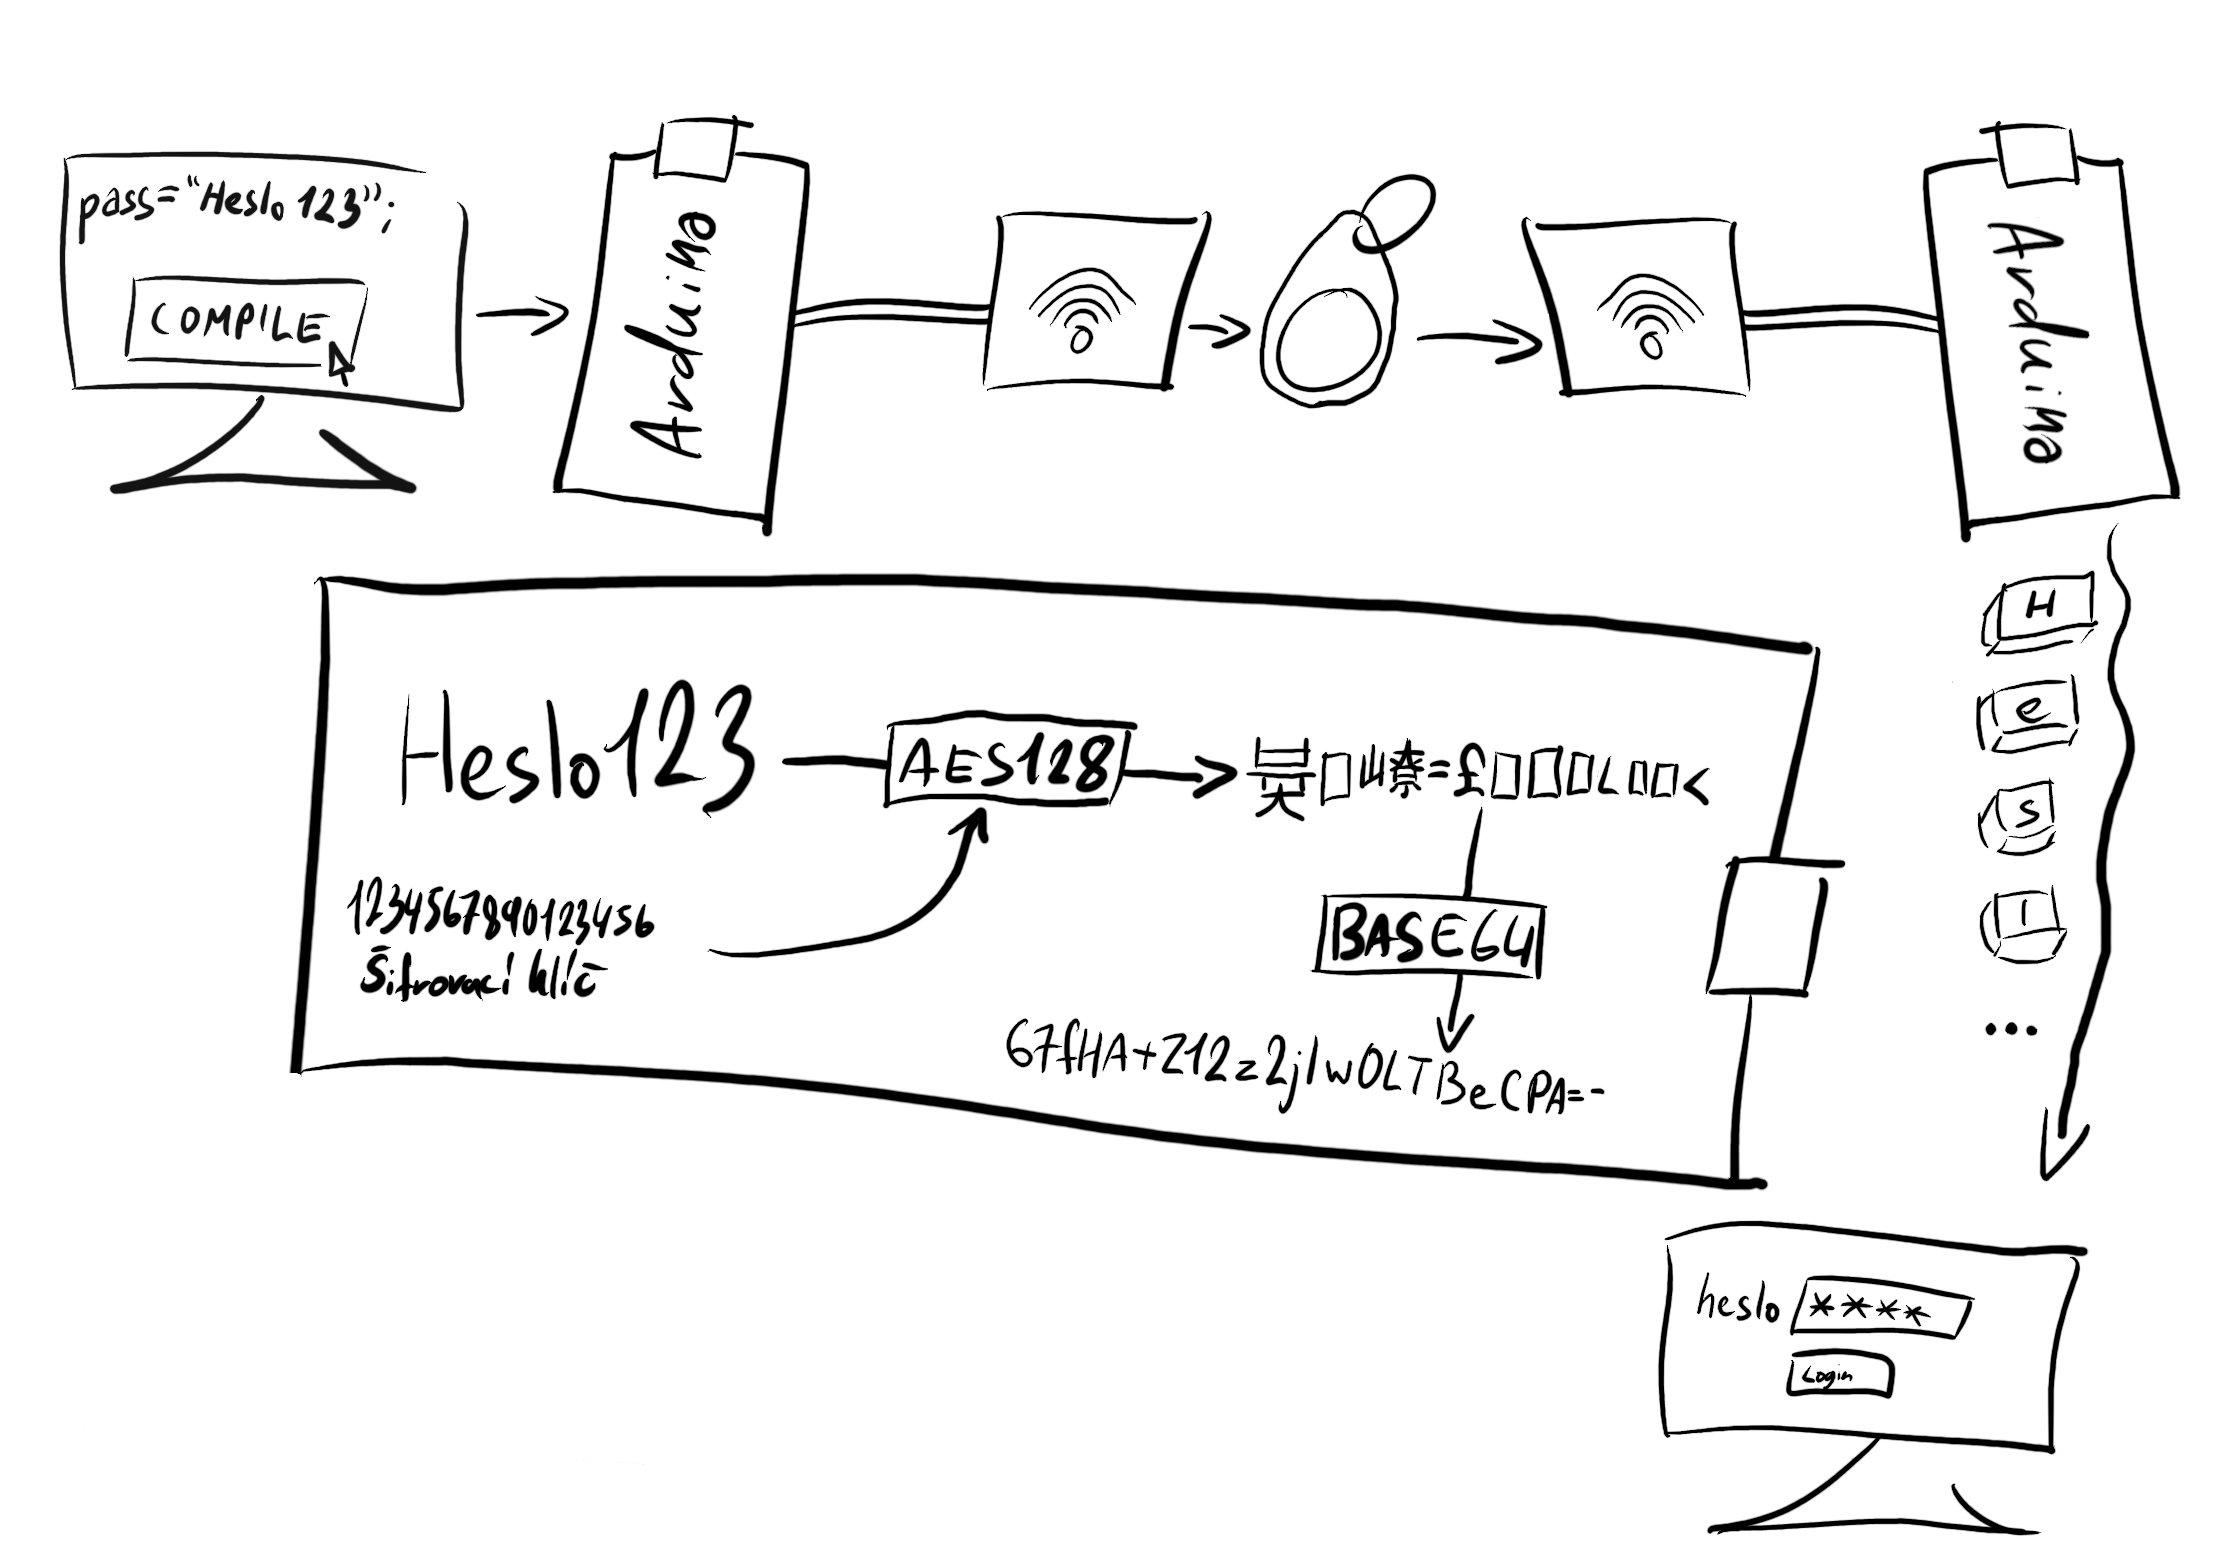 pass="Heslo123";
COMPILE
Arduino
Arduino
H
e
s
l
...
Heslo123
AES128
1234567890123456
Šifrovací klíč
BASE64
67fHA+Z12z2jlwOLTBeCPA==
heslo ****
Login